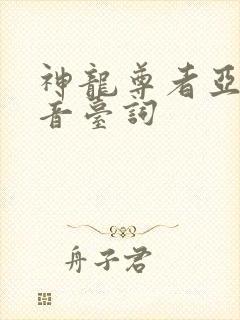 神龍尊者亞
音臺詞
舟子君